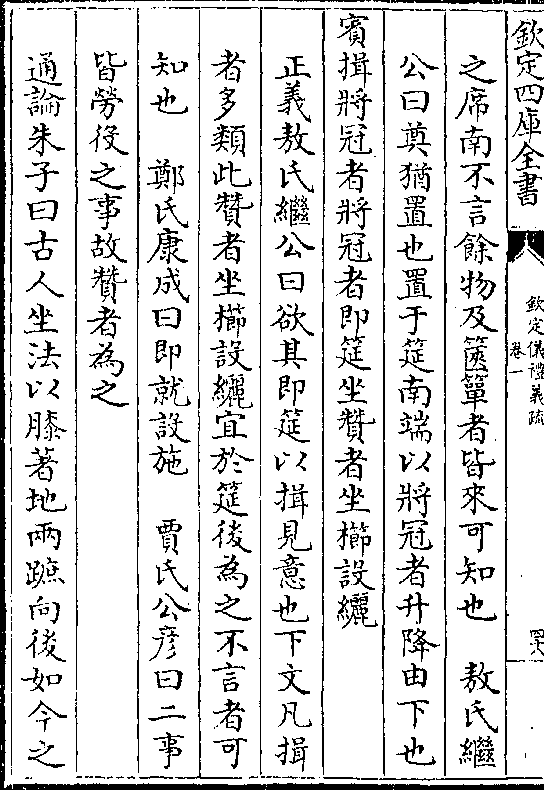 欽定四庫全書
欽定儀禮義疏
卷一
四六
之席南不言餘物及篋簞者皆來可知也　敖氏繼
公曰奠猶置也置于筵南端以將冠者升降由下也
賓揖將冠者將冠者即筵坐贊者坐櫛設纚
正義敖氏繼公曰欲其即筵以揖見意也下文凡揖
者多類此贊者坐櫛設纚宜於筵後為之不言者可
知也　鄭氏康成曰即就設施　賈氏公彥曰二事
皆勞役之事故贊者為之
通論朱子曰古人坐法以膝著地兩蹠向後如今之